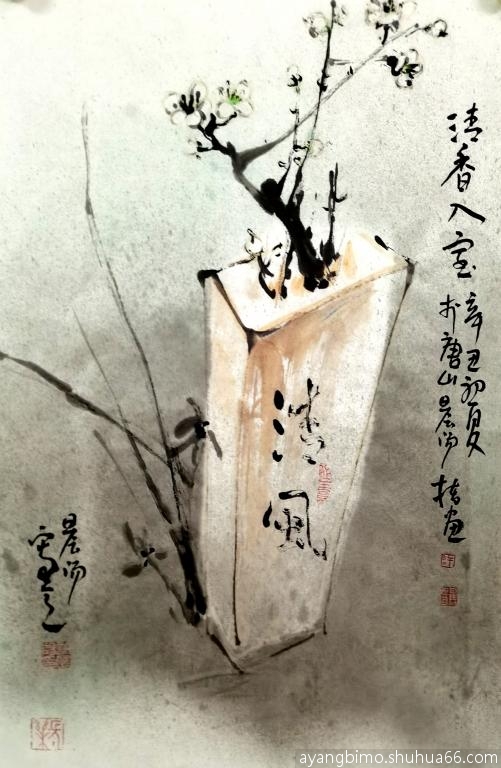 清香入室
辛丑初夏
於唐山晨阳指画
清風
晨阳
ayangbimo.shuhua66.com